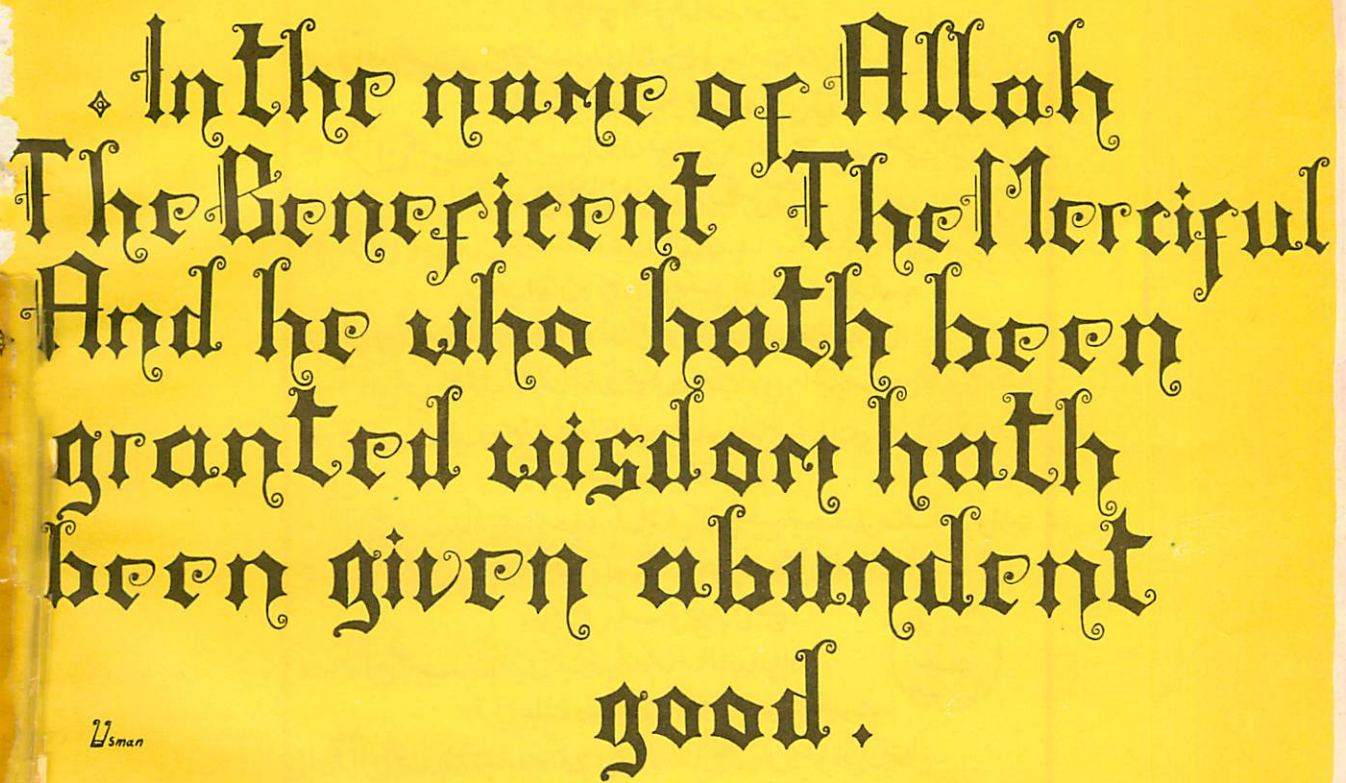 In the name of Allah
The Beneficent The Merciful
And he who hath been
granted wisdom hath
been given abundent
good.
Usman